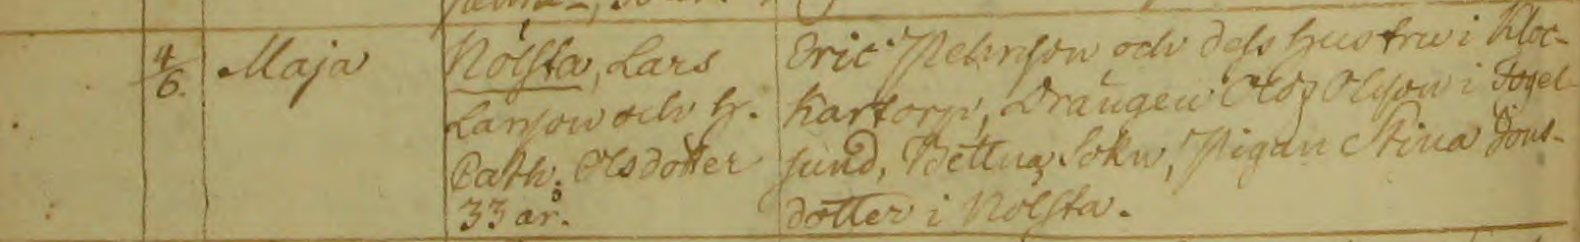 4/6. Maja
Nolsta, Lars
Larsson och h.
Cath. Olsdotter
33 år.
Eric Pehrsson och dess hustru i Kloc-
kartorp, Drängen Olof Olsson i Fogel-
sund, Bettna Sokn, Pigan Stina Jons-
dotter i Nolsta.